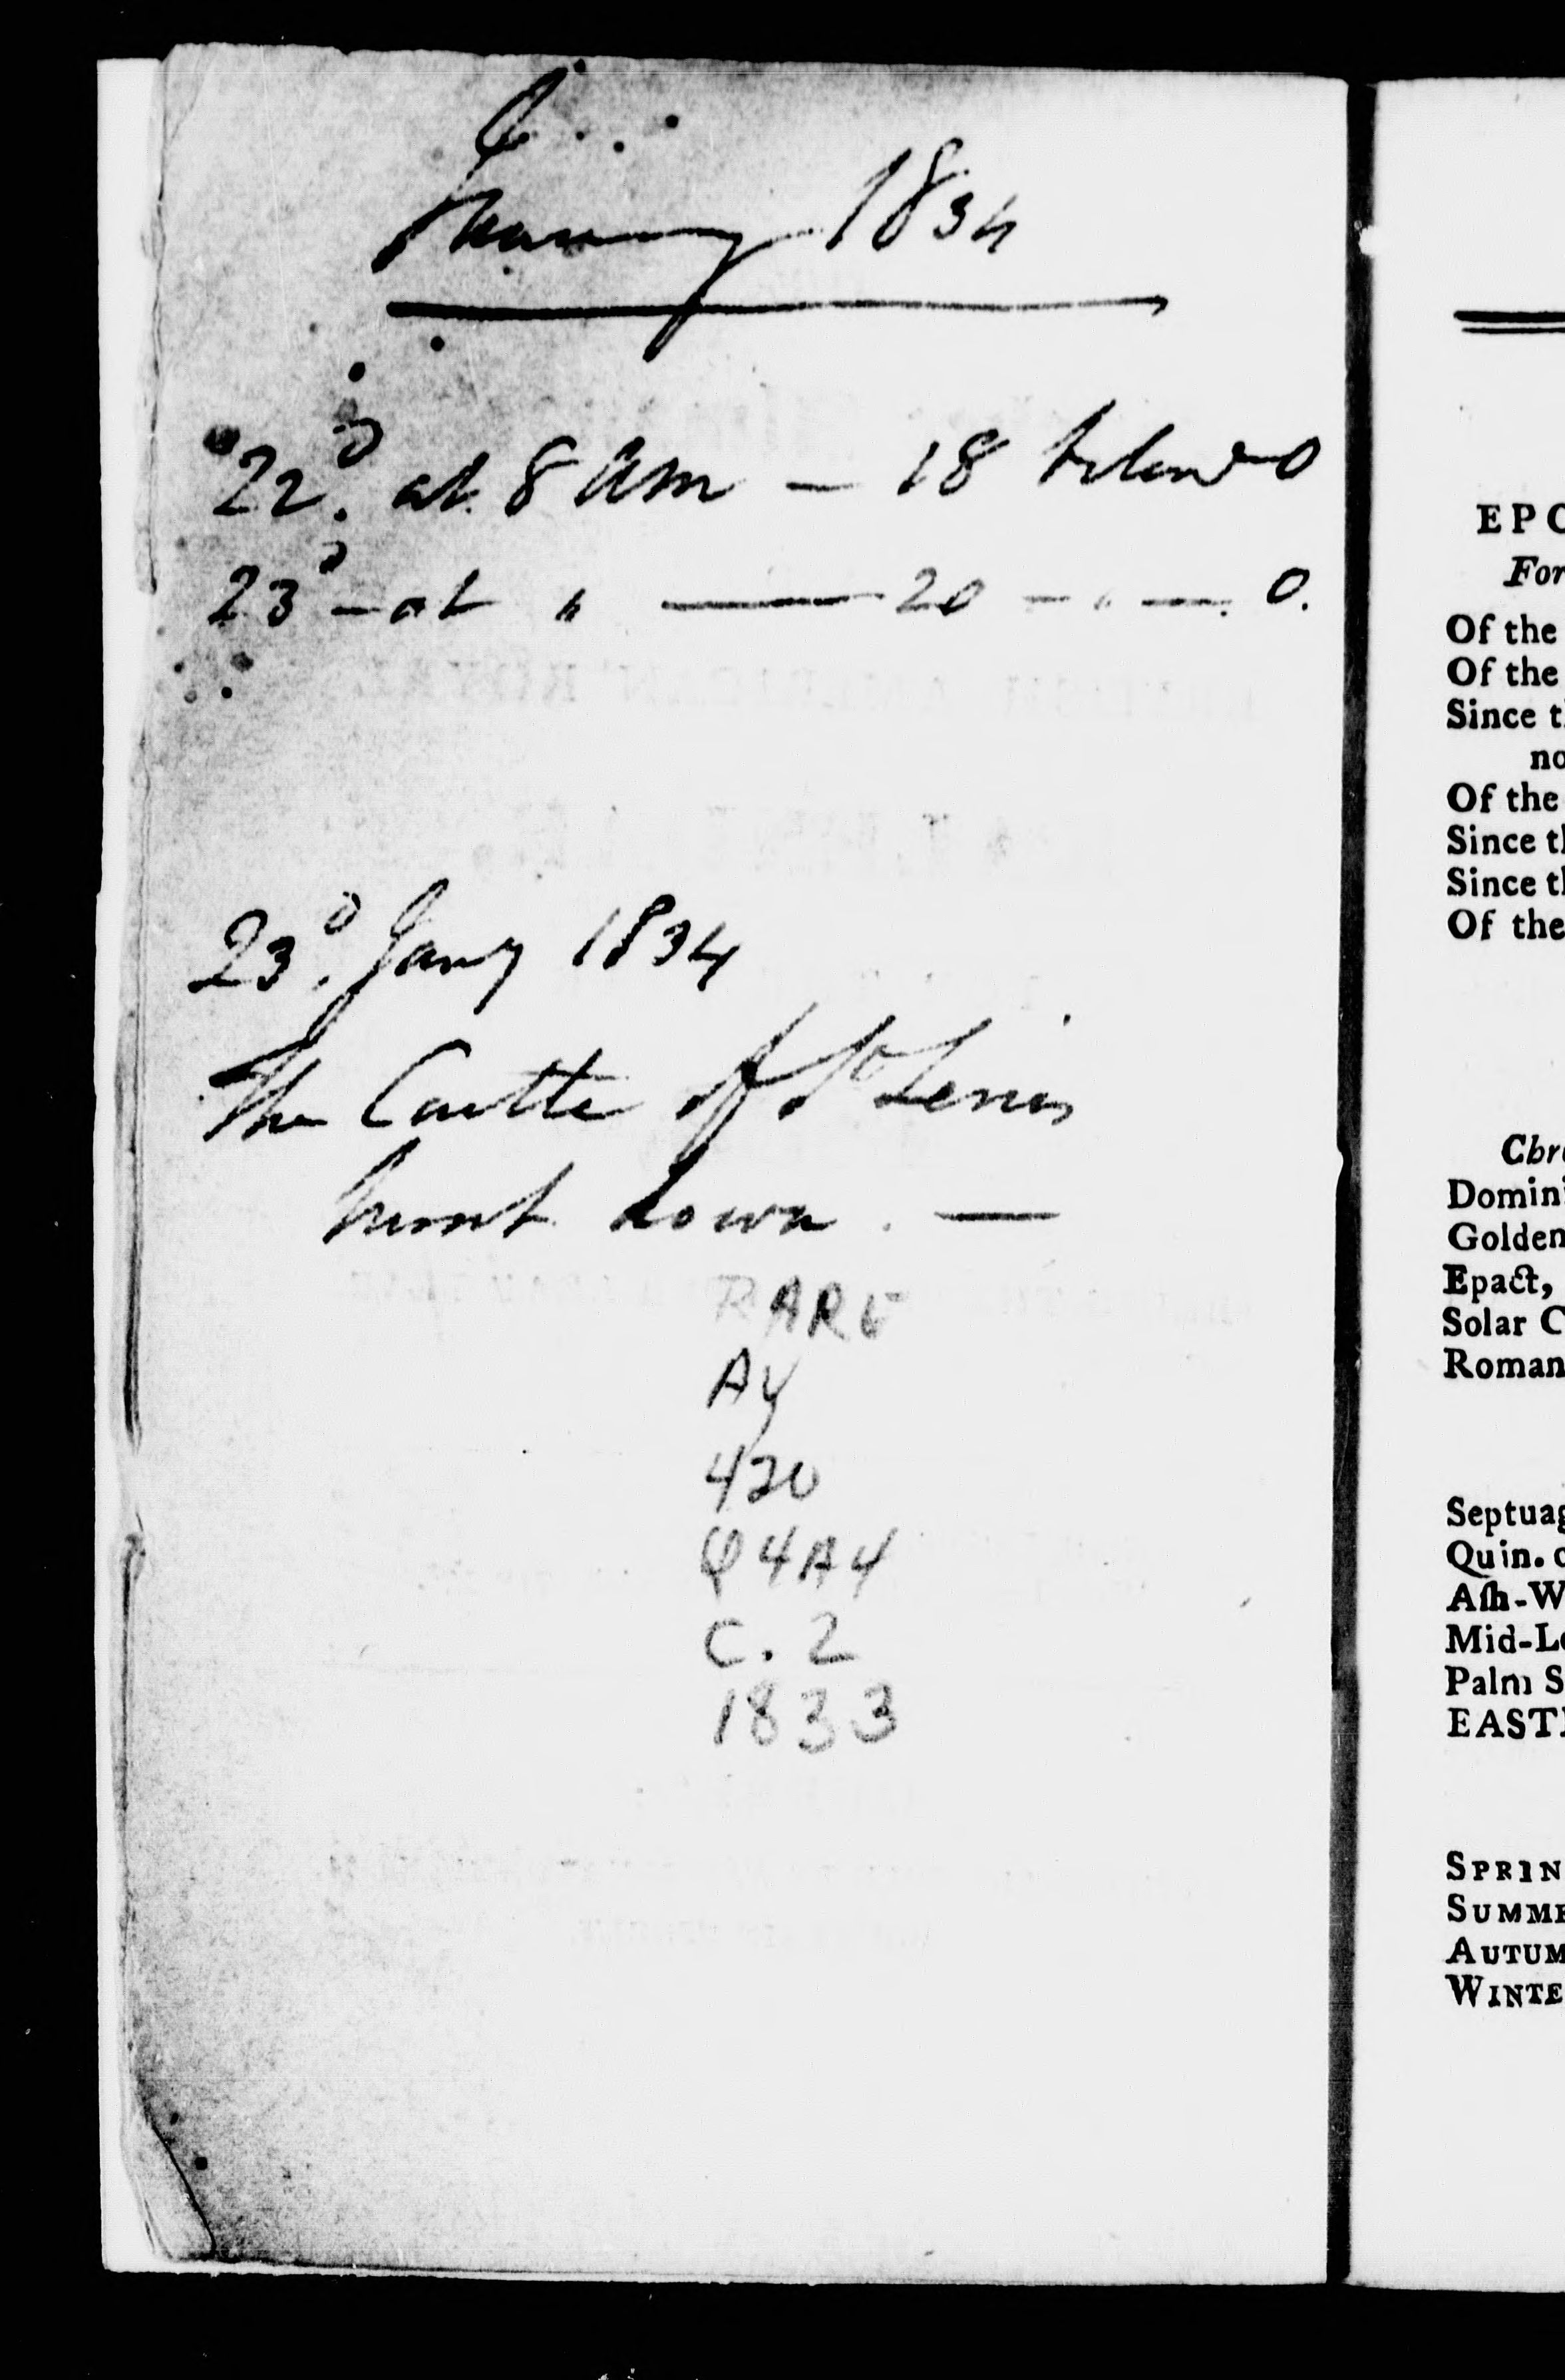 January 1834
22d. at 8 Am — 18 below 0
23d — at " ——— 20 — " — . 0.
23d. Jany 1834
The Castle of St Lewis
burnt down . —
RARE
AY
420
Q4A4
C. 2
1833
EPO
For
Of the
Of the
Since t
no
Of the
Since t
Since t
Of the
Chr
Domini
Golden
Epact,
Solar C
Roman
Septuag
Quin.
Aſh-W
Mid-L
Palm S
EAST
SPRIN
SUMM
AUTUM
WINTE